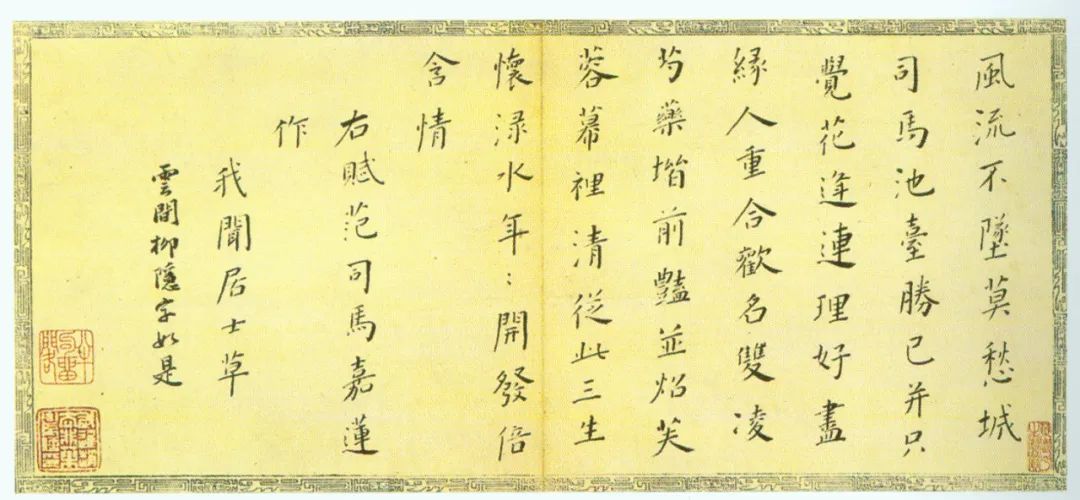 風流不墜莫愁城
司馬池臺勝已并只
覺花逢連理好盡
緣人重合歡名雙凌
芍藥堦前豔並焰芙
蓉幕裡清從此三生
懷淥水年〻開發倍
含情
右賦范司馬嘉蓮
作
我聞居士草
雲間柳隱字如是